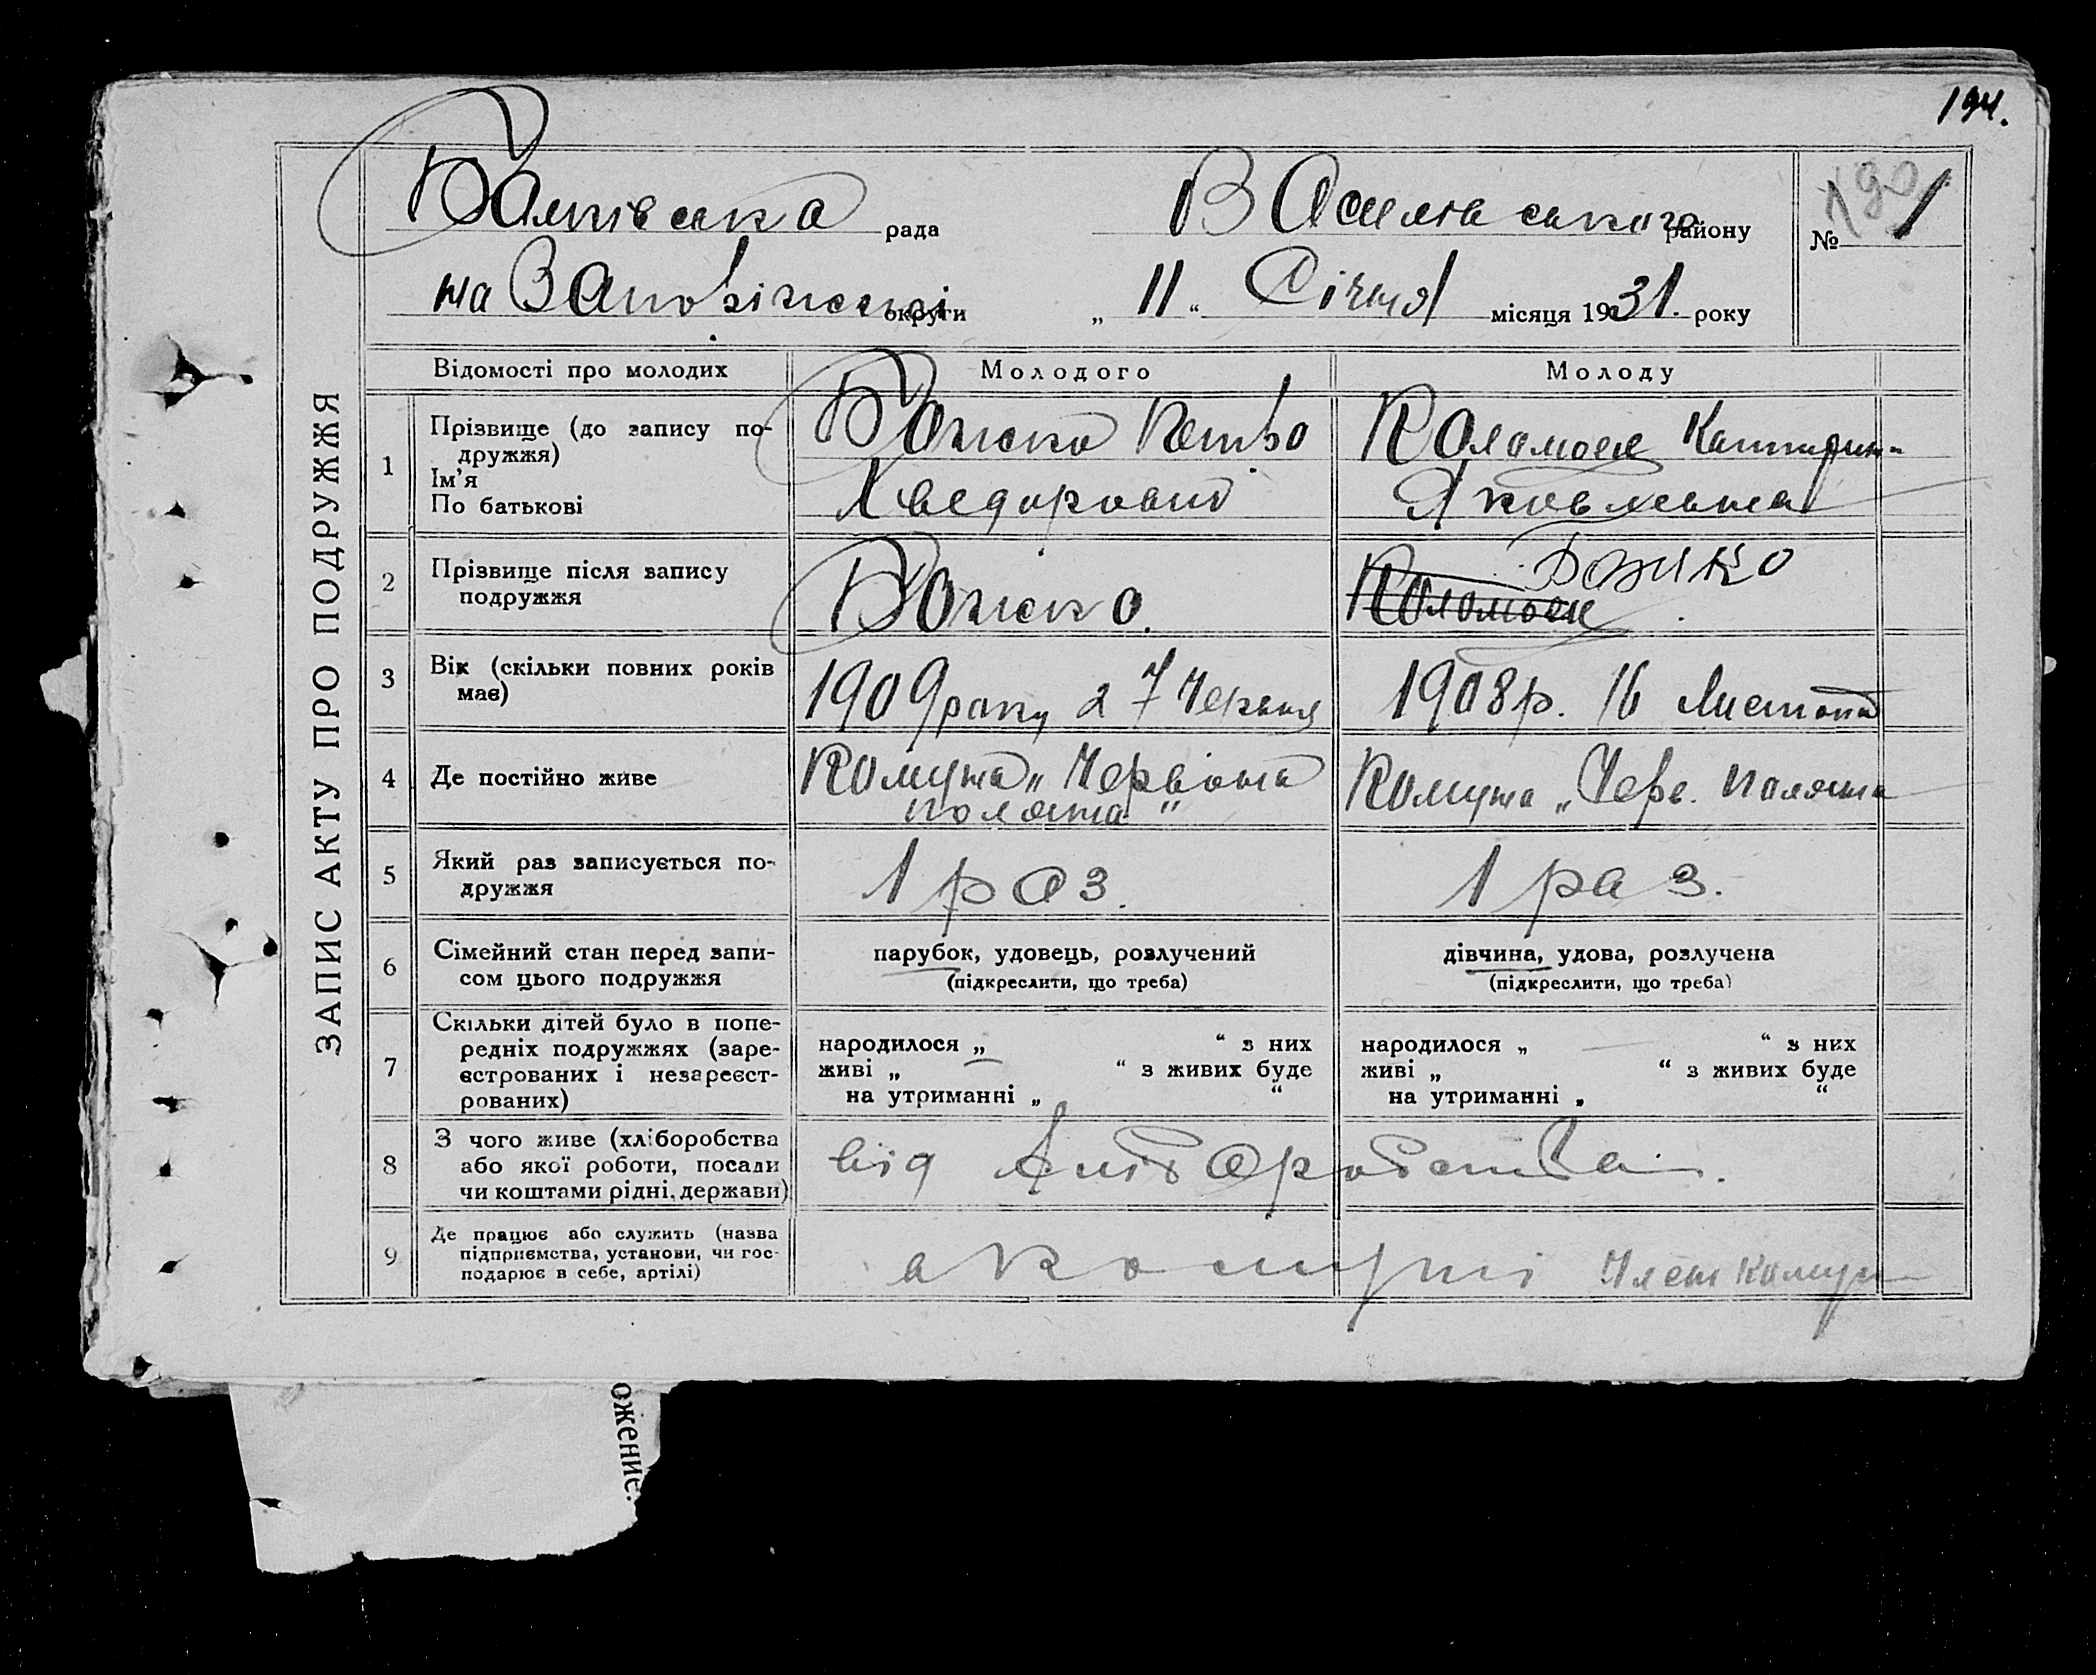 194.
190
Балківська рада Василівського району № 1
на Запоріжжі округи „ 11 “ Січня місяця 1931. року
ЗАПИС АКТУ ПРО ПОДРУЖЖЯ
Відомості про молодих Молодого Молоду
1 Прізвище (до запису по-
дружжя)
Ім'я
По батькові
Божко Петро
Хведорович
Коломоєц Катерина
Яковлевна
2 Прізвище після запису
подружжя
Божко.
Божко
Коломоєц
3 Вік (скільки повних років
має)
1909 року 7 Червня
1908 р. 16 Листопад
4 Де постійно живе
Комуна „Червона
поляна“
Комуна „Черв. поляна
5 Який раз записується по-
дружжя
1 раз.
1 раз.
6 Сімейний стан перед запи-
сом цього подружжя
парубок, удовець, розлучений
(підкреслити, що треба)
дівчина, удова, розлучена
(підкреслити, що треба)
7 Скільки дітей було в попе-
редніх подружжях (заре-
єстрованих і незареєст-
рованих)
народилося „ “ з них
живі „ “ з живих буде
на утриманні „ “
народилося „ — “ з них
живі „ “ з живих буде
на утриманні „ “
8 З чого живе (хліборобства
або якої роботи, посади
чи коштами рідні, держави)
від хліборобства.
9 Де працює або служить (назва
підприємства, установи, чи гос-
подарює в себе, артілі)
в комуні Член комун
ожение.